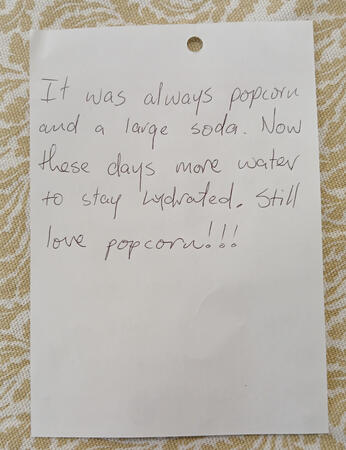 It was always popcorn
and a large soda. Now
these days more water
to stay hydrated. Still
love popcorn!!!